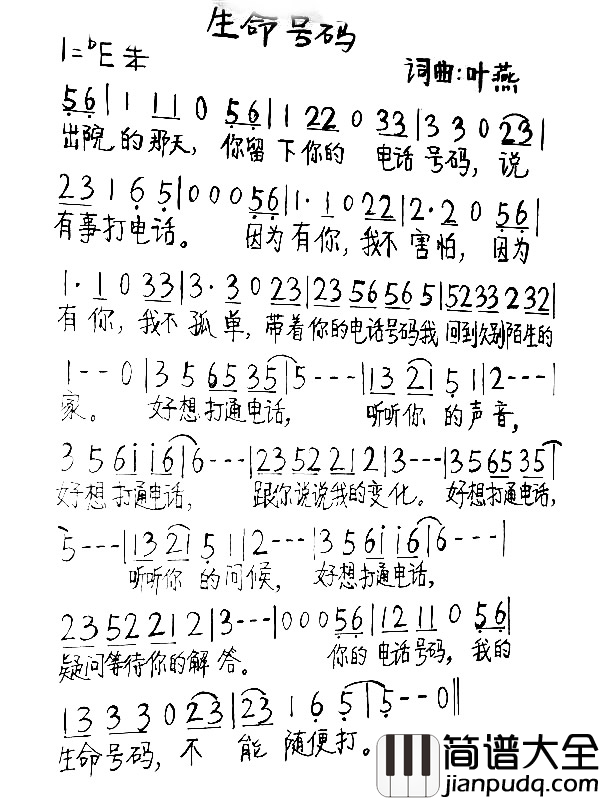 生命号码
1=♭E 朱
词曲:叶燕
5 6 | 1 1 1 0 5 6 | 1 2 2 0 3 3 | 3 3 0 2 3 |
出院的那天，你留下你的 电话号码，说
2 3 1 6 5 | 0 0 0 5 6 | 1· 1 0 2 2 | 2· 2 0 5 6 |
有事打电话。 因为有你，我不害怕，因为
1· 1 0 3 3 | 3· 3 0 2 3 | 2 3 5 6 5 6 5 | 5 2 3 3 2 3 2 |
有你，我不孤单，带着你的电话号码我回到久别陌生的
1 - - 0 | 3 5 6 5 3 5 | 5 - - - | 1 3 2 1 5 1 | 2 - - - |
家。 好想打通电话， 听听你的声音，
3 5 6 i i 6 | 6 - - - | 2 3 5 2 2 1 2 | 3 - - - | 3 5 6 5 3 5 |
好想打通电话， 跟你说说我的变化。 好想打通电话，
5 - - - | 1 3 2 1 5 1 | 2 - - - | 3 5 6 i i 6 | 6 - - - |
听听你的问候， 好想打通电话，
2 3 5 2 2 1 2 | 3 - - - | 0 0 0 5 6 | 1 2 1 1 0 5 6 |
疑问等待你的解答。 你的电话号码，我的
1 3 3 3 0 2 3 | 2 3 1 6 5 | 5 - - 0 ‖
生命号码，不能随便打。
简谱大全
jianpudq.com